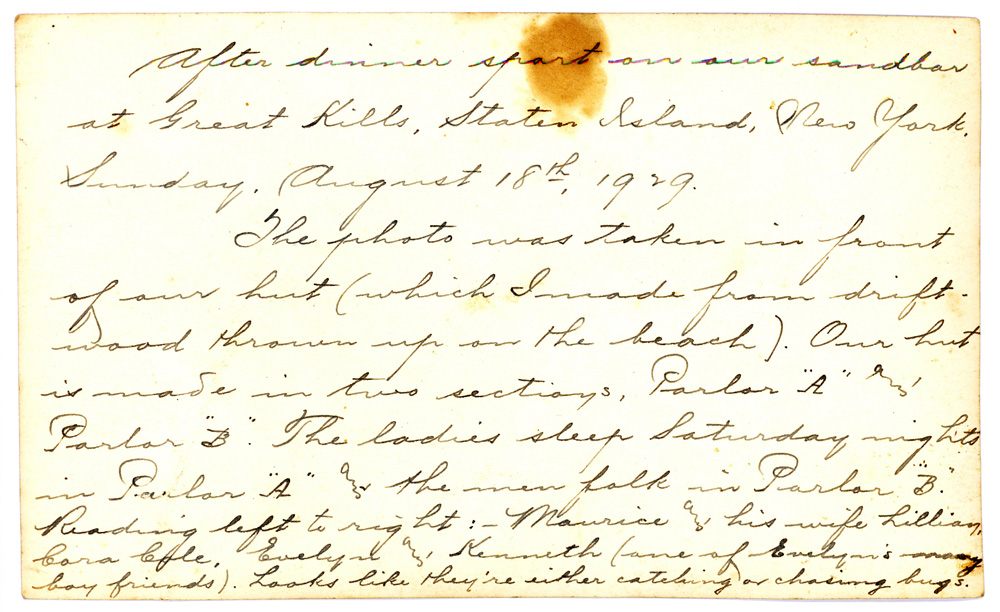 After dinner sport on our sandbar
at Great Kills, Staten Island, New York,
Sunday, August 18th, 1929.
The photo was taken in front
of our hut (which I made from drift-
wood thrown up on the beach). Our hut
is made in two sections, Parlor "A" and
Parlor "B". The ladies sleep Saturday nights
in Parlor "A" and the men folk in Parlor "B".
Reading left to right:- Maurice and his wife Lillian,
Cora Cole, Evelyn and Kenneth (one of Evelyn's many
boy friends). Looks like they're either catching or chasing bugs.